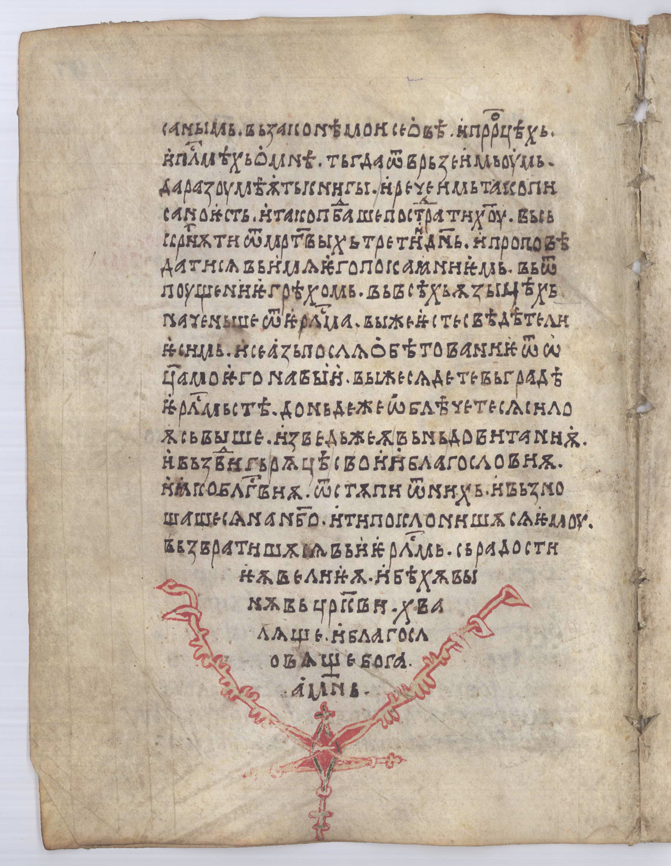 саными. вьзаконѣмоисеѡвѣ. ипррⷪцѣхь.
ип҃лмѣхьѡмнѣ. тьгдаѿврьзеимьоумь.
даразоумѣѫтькнигы. иречеимьтакопи
саноѥсть. итакопⷣбашепострⷣатихо҃у. высь
крⷭнѫтиѿмртⷡ҇ыхьтретиⷤдн҃ь. ипроповѣ
датисѧвьимѧѥгопокаꙗниѥмь. вьѿ
поущениѥгрѣхомь. вьвсѣхьѧзыцѣхь
наченьшеѿѥрⷭлма. выжеѥстесвѣдѣтели
ѥсимь. исеазьпослѧѡбѣтованиѥѿѡ
ц҃амоѥгонавыи. выжесѧдетевьградѣ
ѥрⷭлмьстѣ. доньдежеѡблѣчетесѧсило
ѫсьвыше. изведьжеѫвьньдовитаниꙗ.
ивьздⷡ҇игьрѫцѣсвоииблагословиꙗ.
иꙗкоблгⷭ҇виꙗ. ѿстѫпиѿнихь. ивьзно
шашесѧнанб҃о. итипоклонишѫсѧѥмоу.
вьзвратишѫсѧвьиѥрⷭлмь. сьрадости
ѥѫвелиѥѫ. ибѣхѫвы
нѫвьцрⷦ҇ви. хва
лѧще. иблагосл
овѧщебога.
ам҃нь.